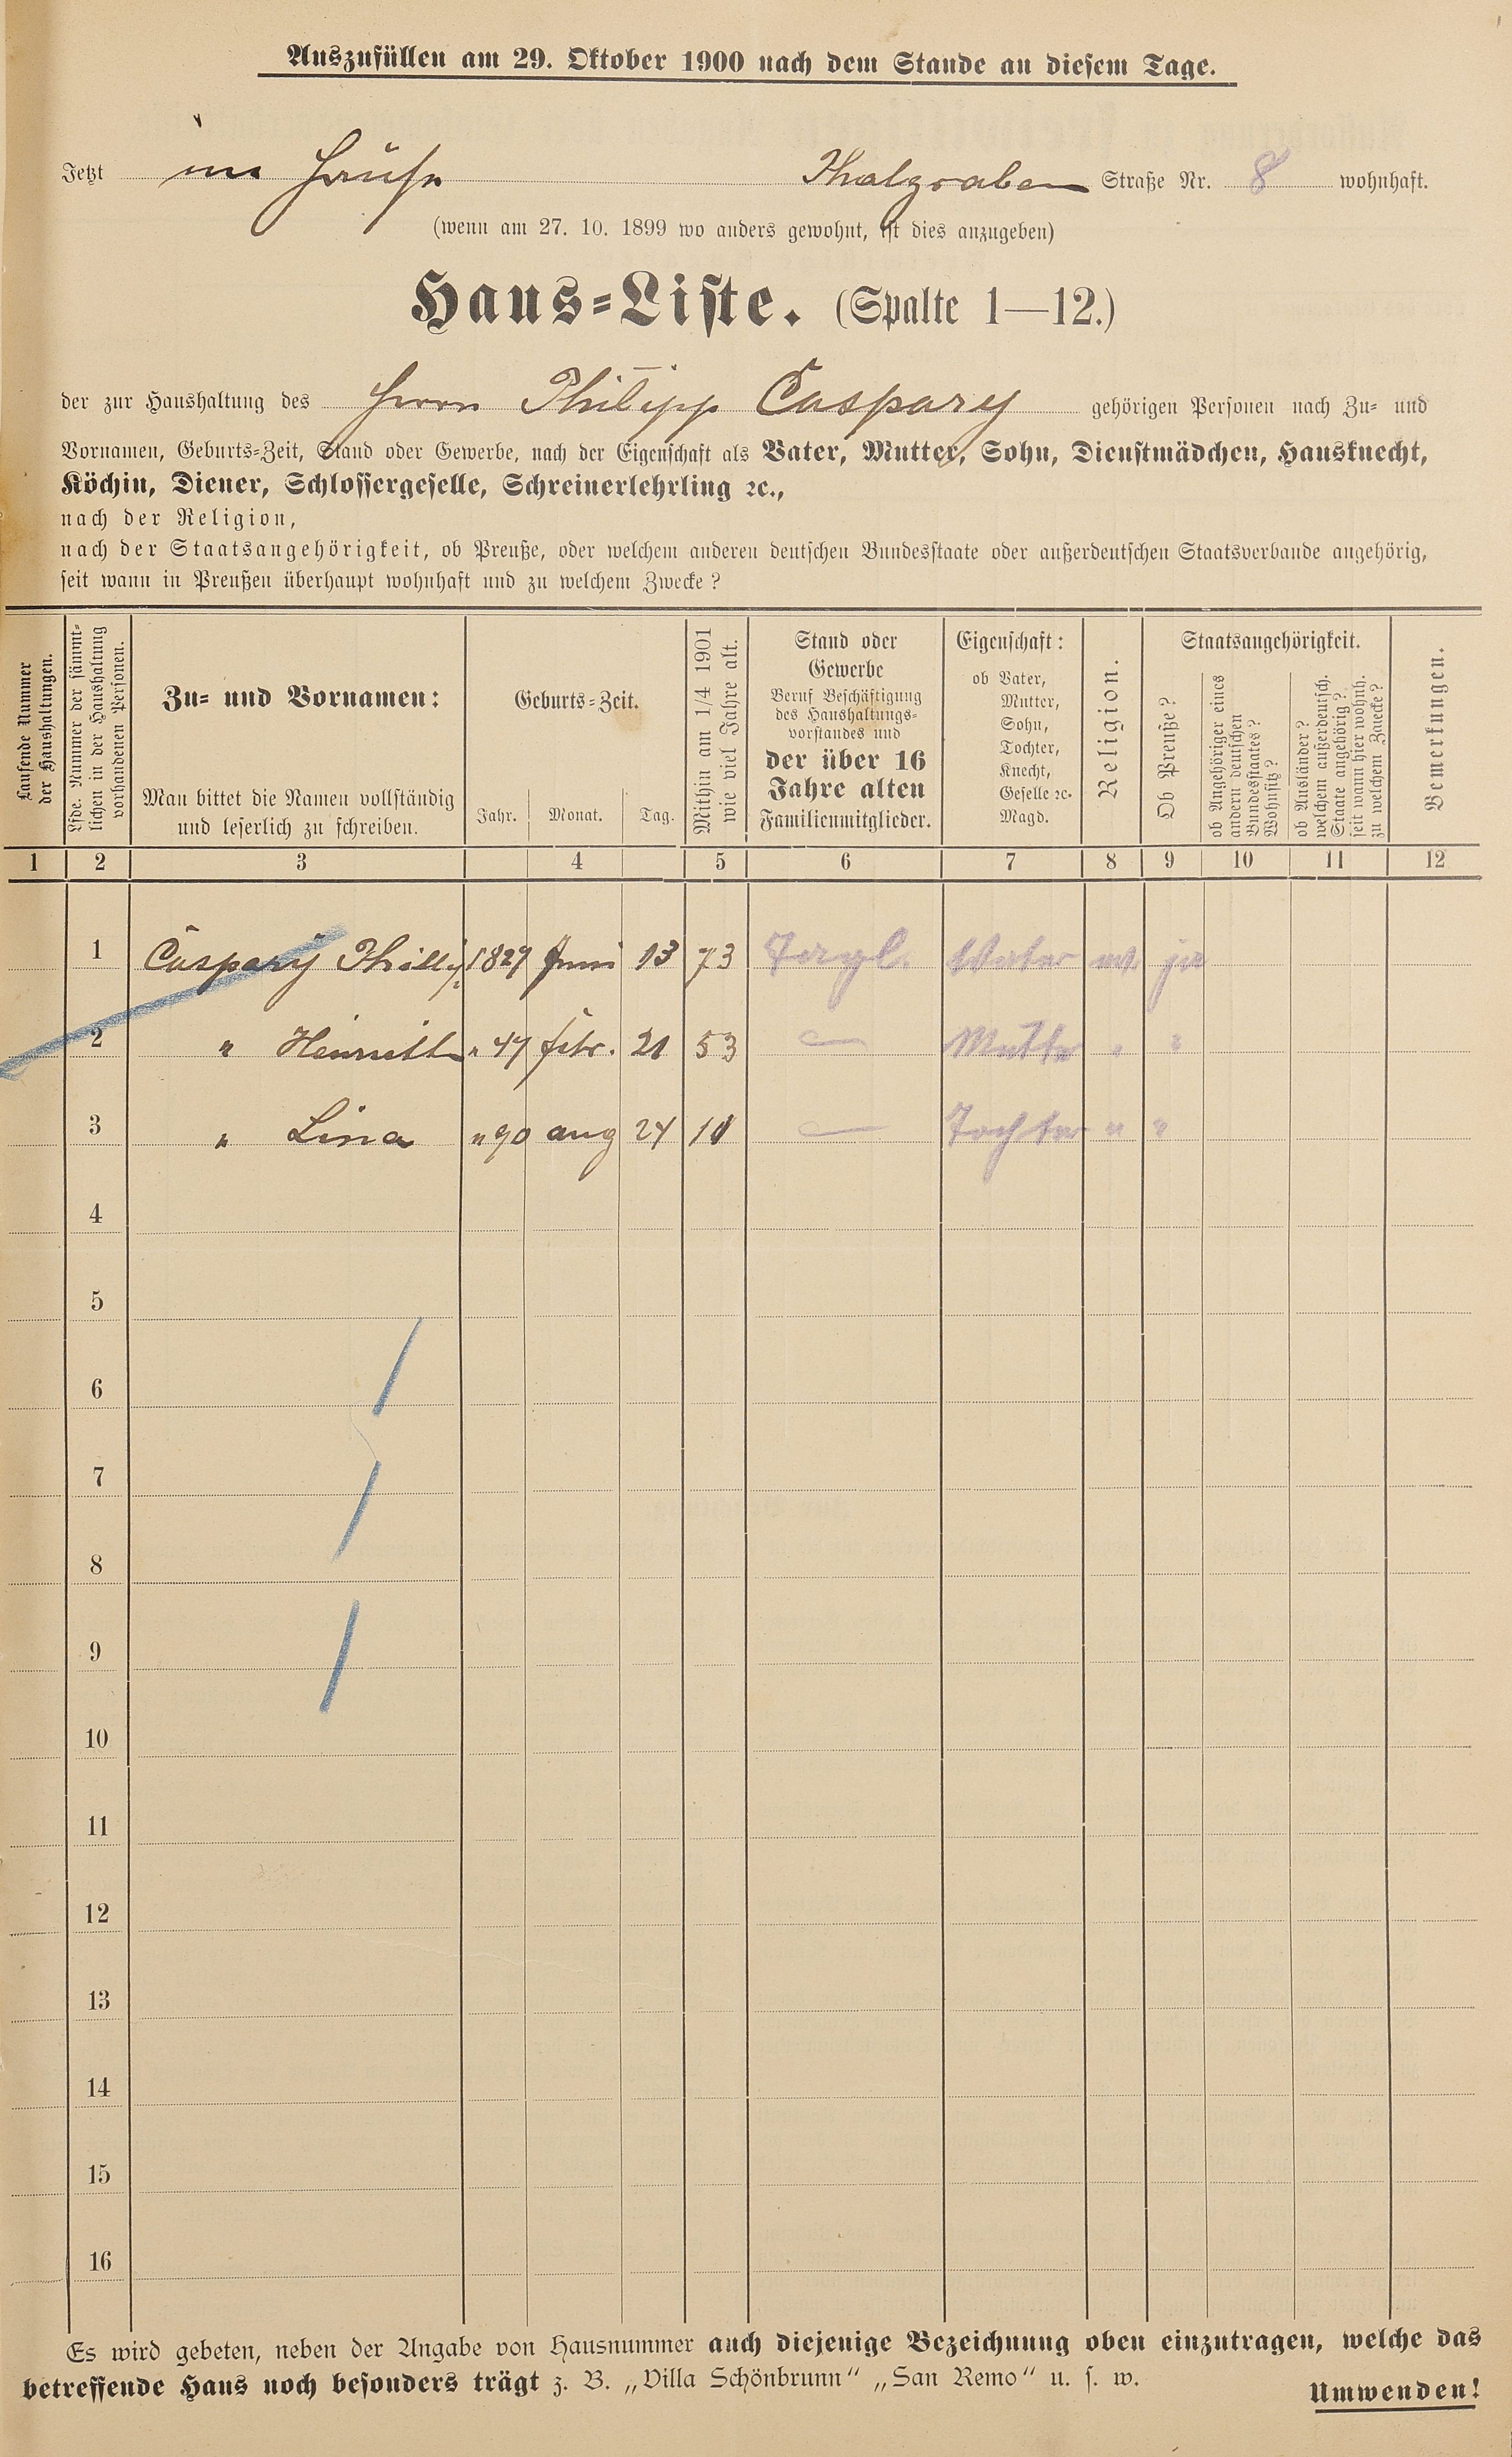 Auszufüllen am 29. Oktober 1900 nach dem Stande an diesem Tage.
Jetzt im Hause Thalgraben Straße Nr. 8 wohnhaft.
(wenn am 27. 10. 1899 wo anders gewohnt, ist dies anzugeben)
Haus-Liste. (Spalte 1—12.)
der zur Haushaltung des Herrn Philipp Caspary gehörigen Personen nach Zu- und
Vornamen, Geburts-Zeit, Stand oder Gewerbe, nach der Eigenschaft als Vater, Mutter, Sohn, Dienstmädchen, Hausknecht,
Köchin, Diener, Schlossergeselle, Schreinerlehrling ꝛc.,
nach der Religion,
nach der Staatsangehörigkeit, ob Preuße, oder welchem anderen deutschen Bundesstaate oder außerdeutschen Staatsverbande angehörig,
seit wann in Preußen überhaupt wohnhaft und zu welchem Zwecke?
Laufende Nummer
der Haushaltungen.
Lfde. Nummer der sämmt-
lichen in der Haushaltung
vorhandenen Personen.
Zu- und Vornamen:
Man bittet die Namen vollständig
und leserlich zu schreiben.
Geburts-Zeit.
Jahr. Monat. Tag.
Mithin am 1/4 1901
wie viel Jahre alt.
Stand oder
Gewerbe
Beruf Beschäftigung
des Haushaltungs-
vorstandes und
der über 16
Jahre alten
Familienmitglieder.
Eigenschaft:
ob Vater,
Mutter,
Sohn,
Tochter,
Knecht,
Geselle ꝛc.
Magd.
Religion.
Staatsangehörigkeit.
Ob Preuße?
ob Angehöriger eines
andern deutschen
Bundesstaates?
Wohnsitz?
ob Ausländer?
welchem außerdeutsch.
Staate angehörig?
seit wann hier wohnh.
zu welchem Zwecke?
Bemerkungen.
1 2 3 4 5 6 7 8 9 10 11 12
1 Caspary Philip 1827 Juni 13 73 Tagl. Vater ev. ja
2 " Henriett " 47 febr. 21 53 — Mutter " "
3 " Lina " 90 aug 24 10 — Tochter " "
4
5
6
7
8
9
10
11
12
13
14
15
16
Es wird gebeten, neben der Angabe von Hausnummer auch diejenige Bezeichnung oben einzutragen, welche das
betreffende Haus noch besonders trägt z. B. „Villa Schönbrunn“ „San Remo“ u. s. w.
Umwenden!